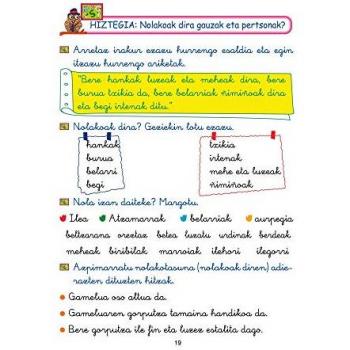 HIZTEGIA: Nolakoak dira gauzak eta pertsonak?
Arretaz irakur ezazu hurrengo esaldia eta egin
itzazu hurrengo ariketak.
"Bere hankak luzeak eta meheak dira, bere
burua txikia da, bere belarriak ñimiñoak dira
eta begi irtenak ditu."
Nolakoak dira? Geziekin lotu ezazu.
hankak
burua
belarri
begi
txikia
irtenak
mehe eta luzeak
ñimiñoak
Nola izan daiteke? Margotu.
Ilea Atzamarrak belarriak aurpegia
beltzarana oreztaz betea luzatu urdinak berdeak
meheak biribilak marroiak ilehori ilegorri
Azpimarratu nolakotasuna (nolakoak diren) adie-
razten dituzten hitzak.
Gamelua oso altua da.
Gameluaren gorputza tamaina handikoa da.
Bere gorputza ile fin eta luzez estalita dago.
19